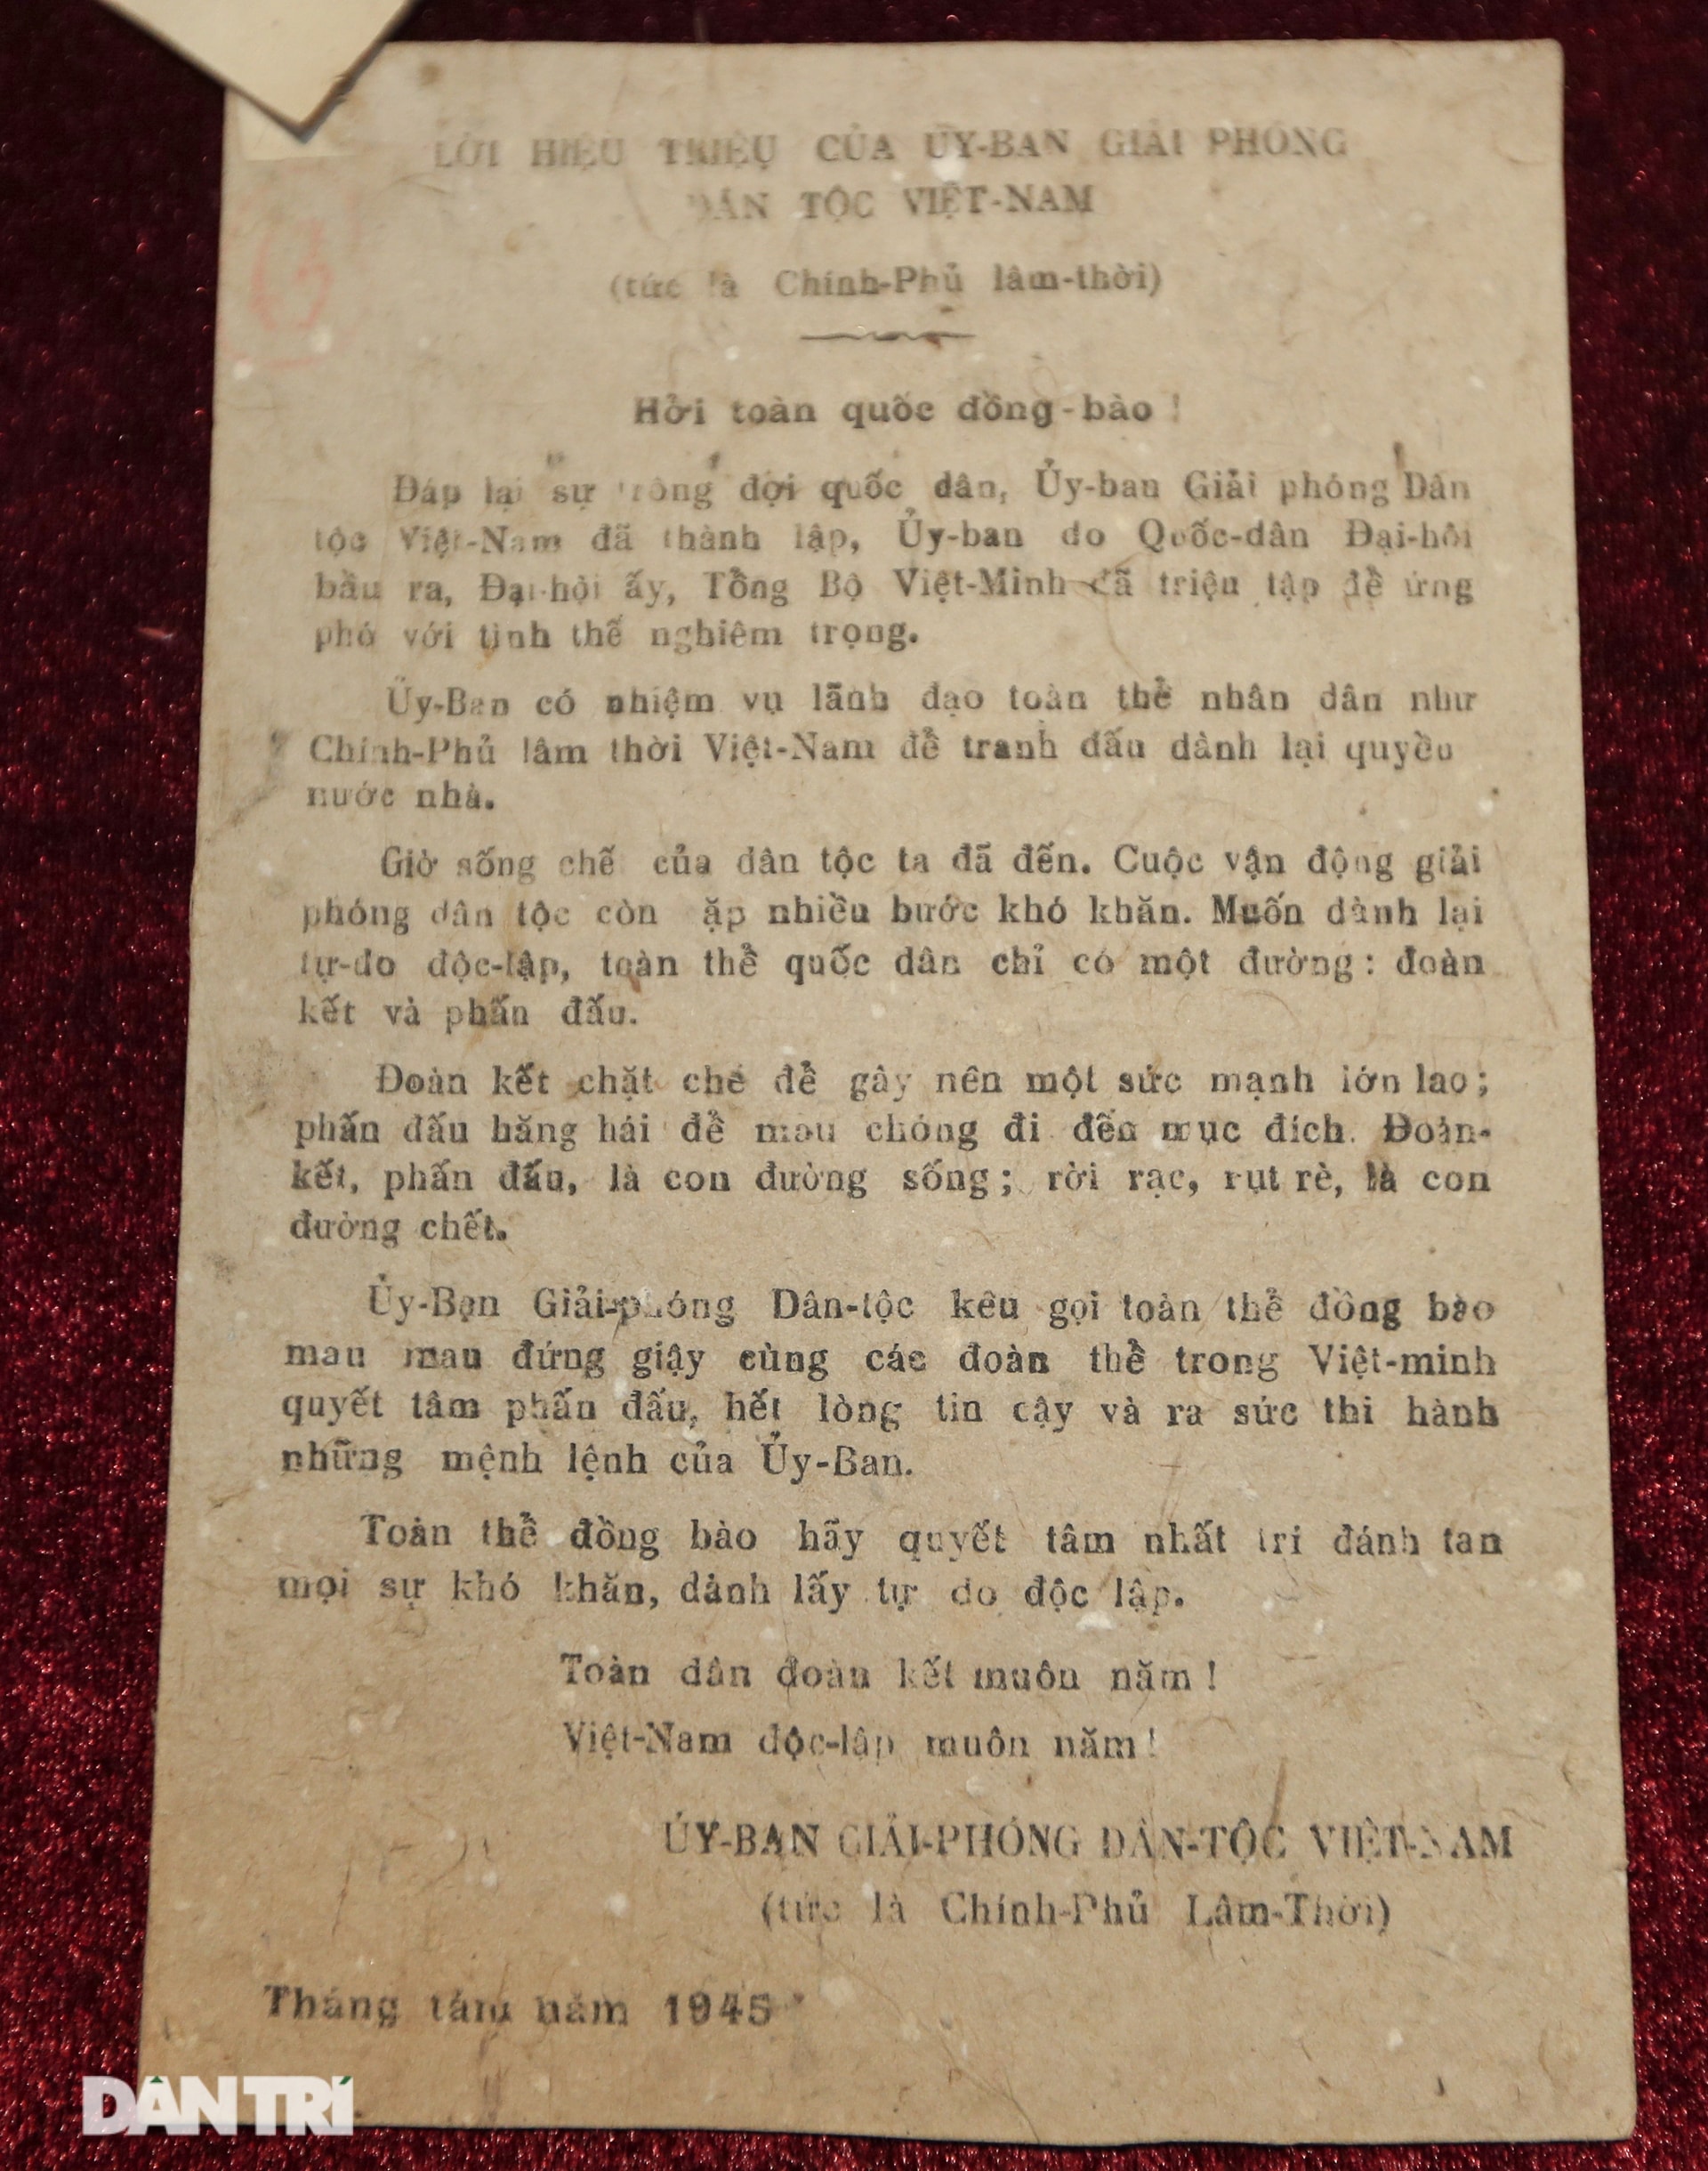 LỜI HIỆU TRIỆU CỦA ỦY-BAN GIẢI PHÓNG
DÂN TỘC VIỆT-NAM
(tức là Chính-Phủ lâm-thời)
Hởi toàn quốc đồng-bào !
Đáp lại sự trông đợi quốc dân, Ủy-ban Giải phóng Dân
tộc Việt-Nam đã thành lập, Ủy-ban do Quốc-dân Đại-hội
bầu ra, Đại-hội ấy, Tổng Bộ Việt-Minh đã triệu tập để ứng
phó với tình thế nghiêm trọng.
Ủy-Ban có nhiệm vụ lãnh đạo toàn thể nhân dân như
Chính-Phủ lâm thời Việt-Nam để tranh đấu dành lại quyền
nước nhà.
Giờ sống chế của dân tộc ta đã đến. Cuộc vận động giải
phóng dân tộc còn ặp nhiều bước khó khăn. Muốn dành lại
tự-do độc-lập, toàn thể quốc dân chỉ có một đường : đoàn
kết và phấn đấu.
Đoàn kết chặt chẻ để gây nên một sức mạnh lớn lao ;
phấn đấu hăng hái để mau chóng đi đến mục đích. Đoàn-
kết, phấn đấu, là con đường sống ; rời rạc, rụt rè, là con
đường chết.
Ủy-Ban Giải-phóng Dân-tộc kêu gọi toàn thể đồng bào
mau mau đứng giậy cùng các đoàn thể trong Việt-minh
quyết tâm phấn đấu, hết lòng tin cậy và ra sức thi hành
những mệnh lệnh của Ủy-Ban.
Toàn thể đồng bào hãy quyết tâm nhất trí đánh tan
mọi sự khó khăn, dành lấy tự do độc lập.
Toàn dân đoàn kết muôn năm !
Việt-Nam độc-lập muôn năm !
ỦY-BAN GIẢI-PHÓNG DÂN-TỘC VIỆT-NAM
(tức là Chính-Phủ Lâm-Thời)
Tháng tám năm 1945
DÂN TRÍ